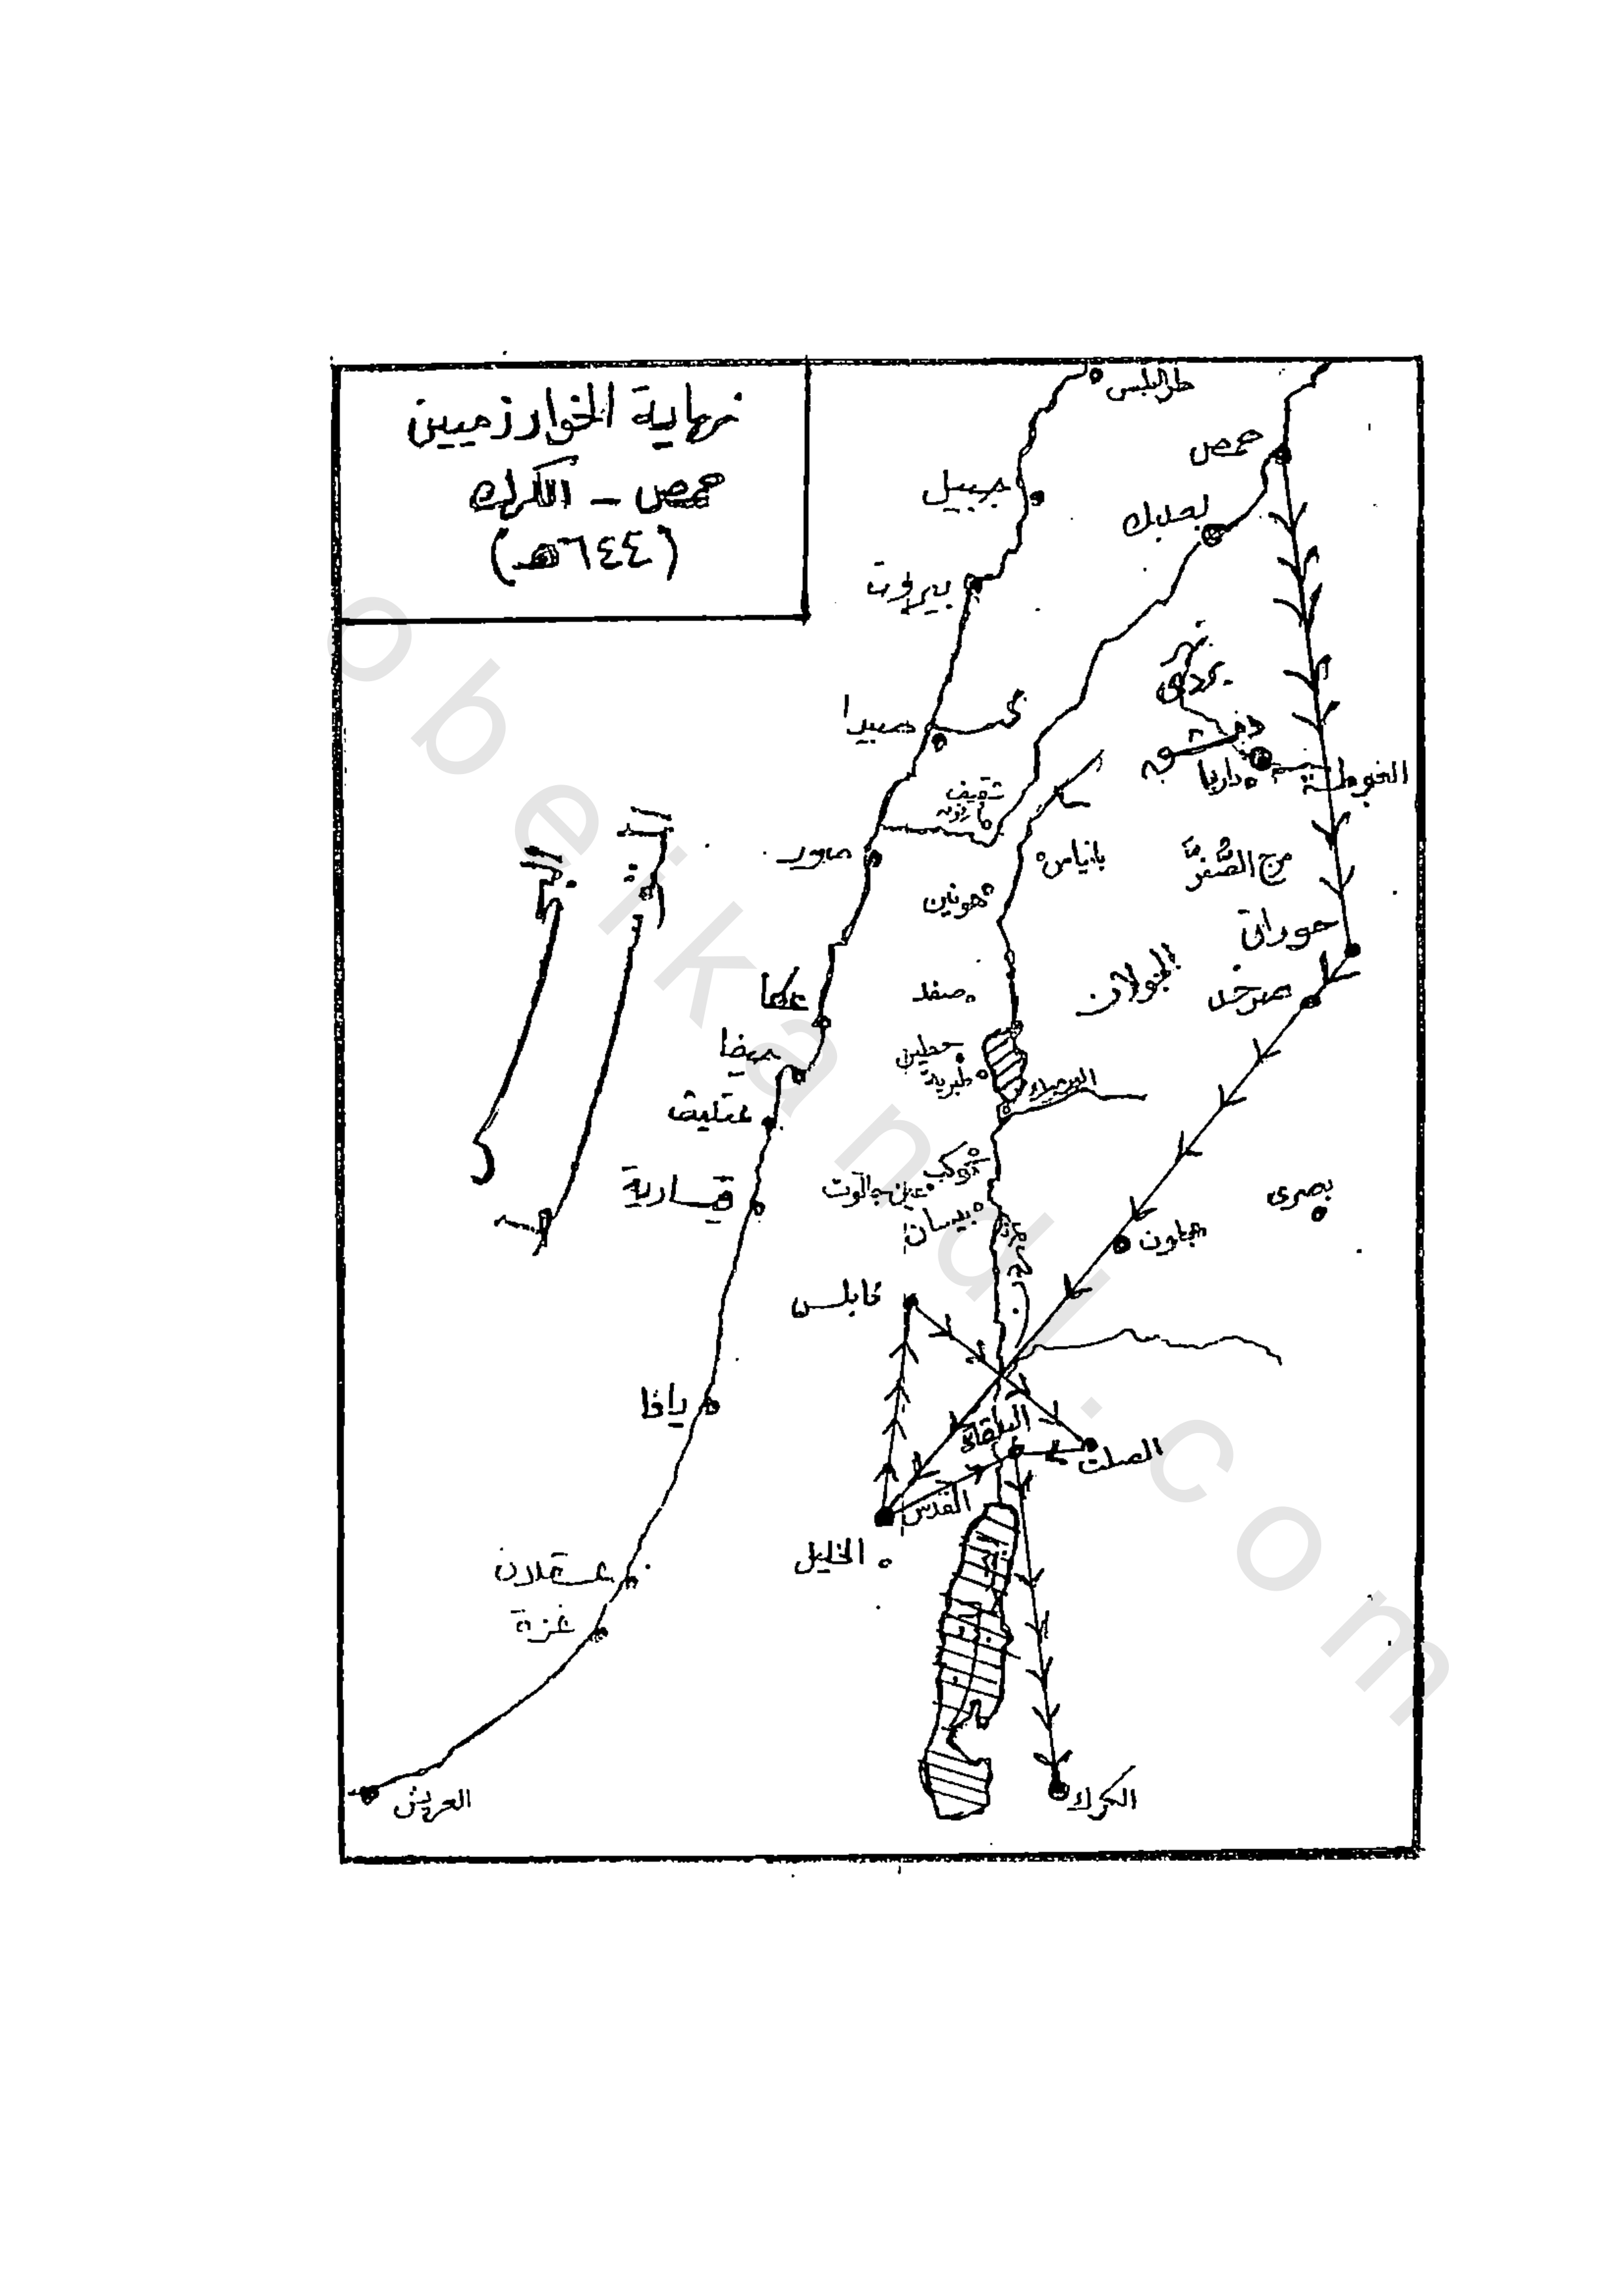 نهاية الخوارزميين
حمص - الكرك
(٦٤٤هـ)
طرابلس
حمص
جبيل
بعلبك
بيروت
نهر
بردى
صيدا
دمشق
الغوطة
داريا
شقيف
صور
بانياس
مرج الصُّفر
هونين
حوران
الجولان
صفد
صرخد
عكا
حطين
حيفا
طبرية
عتليت
كوكب
عين جالوت
قيسارية
بيسان
بصرى
عجلون
نابلس
يافا
البلقاء
الصلت
القدس
الخليل
عسقلان
غزة
العريش
الكرك
obeikandl.com